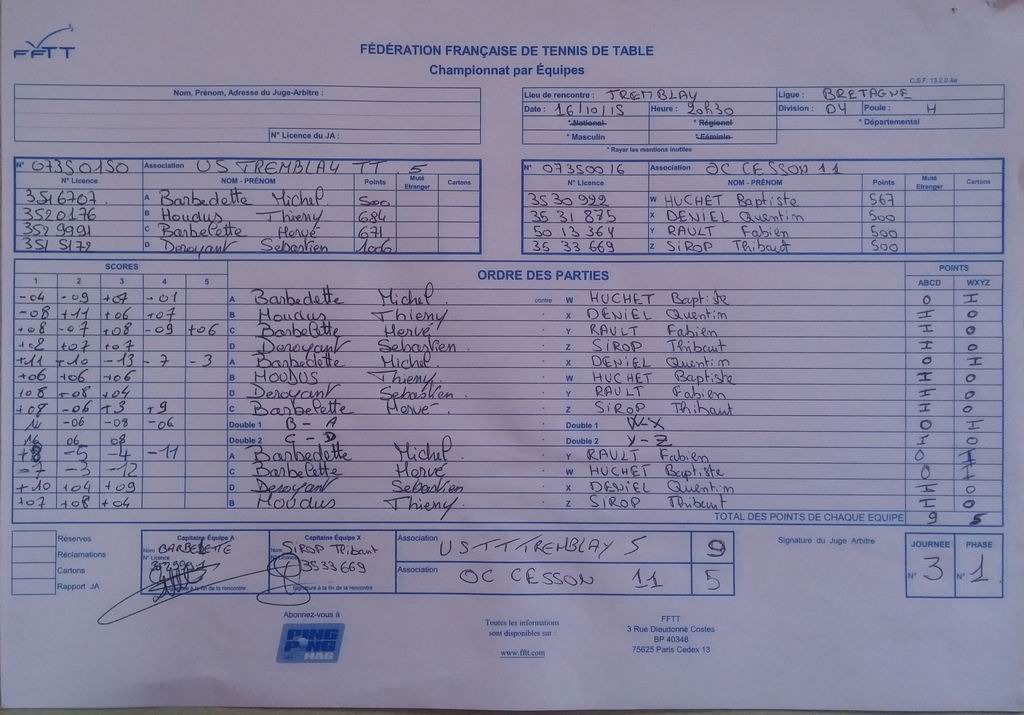 FFTT
FÉDÉRATION FRANÇAISE DE TENNIS DE TABLE
Championnat par Équipes
C.S.F. 13.2.0.4a
Nom, Prénom, Adresse du Juge-Arbitre :
N° Licence du JA :
Lieu de rencontre : TREMBLAY Ligue : BRETAGNE
Date : 16/10/15 Heure : 20h30 Division : D4 Poule : H
* National * Régional * Départemental
* Masculin * Féminin
* Rayer les mentions inutiles
N° 07350150 Association US TREMBLAY TT 5
N° Licence NOM - PRÉNOM Points Muté Etranger Cartons
3516707 A Barbedette Michel 500
3520176 B Houdus Thierry 684
3529991 C Barbelette Hervé 671
3515172 D Deroyant Sebastien 1006
N° 07350016 Association OC CESSON 11
N° Licence NOM - PRÉNOM Points Muté Etranger Cartons
35 30 992 W HUCHET Baptiste 567
35 31 875 X DENIEL Quentin 500
50 13 364 Y RAULT Fabien 500
35 33 669 Z SIROP Thibaut 500
SCORES ORDRE DES PARTIES POINTS
1 2 3 4 5 ABCD WXYZ
-04 -09 +07 -01 A Barbedette Michel contre W HUCHET Baptiste 0 I
-08 +11 +06 +07 B Houdus Thierry X DENIEL Quentin I 0
+08 -07 +08 -09 +06 C Barbelette Hervé Y RAULT Fabien I 0
+02 +07 +07 D Deroyant Sebastien Z SIROP Thibaut I 0
+11 +10 -13 -7 -3 A Barbedette Michel X DENIEL Quentin 0 I
+06 +06 +06 B HOUDUS Thierry W HUCHET Baptiste I 0
+08 +08 +04 D Deroyant Sebastien Y RAULT Fabien I 0
+08 -06 +3 +9 C Barbelette Hervé Z SIROP Thibaut I 0
-06 -08 -06 Double 1 B - A Double 1 W-X 0 I
16 06 08 Double 2 C - D Double 2 Y-Z I 0
+8 -5 -4 -11 A Barbedette Michel Y RAULT Fabien 0 I
-7 -3 -12 C Barbelette Hervé W HUCHET Baptiste 0 I
+10 +04 +09 D Deroyant Sebastien X DENIEL Quentin I 0
+07 +08 +04 B Houdus Thierry Z SIROP Thibaut I 0
TOTAL DES POINTS DE CHAQUE EQUIPE 9 5
Réserves
Réclamations
Cartons
Rapport JA
Capitaine Équipe A
Nom BARBELETTE
N° Licence
Signature à la fin de la rencontre
Capitaine Équipe X
Nom SIROP Thibaut
N° Licence 3533669
Signature à la fin de la rencontre
Association USTT TREMBLAY 5 9
Association OC CESSON 11 5
Signature du Juge Arbitre
JOURNEE PHASE
N° 3 N° 1
Abonnez-vous à
PING PONG MAG
Toutes les informations
sont disponibles sur :
www.fftt.com
FFTT
3 Rue Dieudonné Costes
BP 40348
75625 Paris Cedex 13